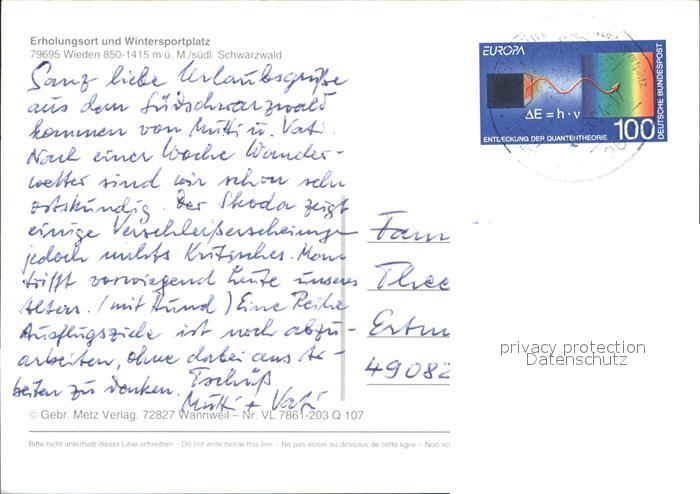 Erholungsort und Wintersportplatz
79695 Wieden 850-1415 m ü. M./südl. Schwarzwald
Ganz liebe Urlaubsgrüße
aus dem Südschwarzwald
kommen von Mutti u. Vati.
Nach einer Woche Wander-
wetter sind wir schon sehr
ortskundig. Der Skoda zeigt
einige Verschleißerscheinungen
jedoch nichts Kritisches. Man
trifft vorwiegend Leute unseres
Alters. (mit Hund) Eine Reihe
Ausflugsziele ist noch abzu-
arbeiten, ohne dabei ans Ar-
beiten zu denken. Tschüß
Mutti + Vati
© Gebr. Metz Verlag. 72827 Wannweil – Nr. VL 7861-203 Q 107
Bitte nicht unterhalb dieser Linie schreiben – Do not write below this line – Ne pas écrire au dessous de cette ligne – Non sc
EUROPA
ΔE = h · ν
ENTDECKUNG DER QUANTENTHEORIE
100
DEUTSCHE BUNDESPOST
Fam
Thee
Ertm
49082
privacy protection
Datenschutz